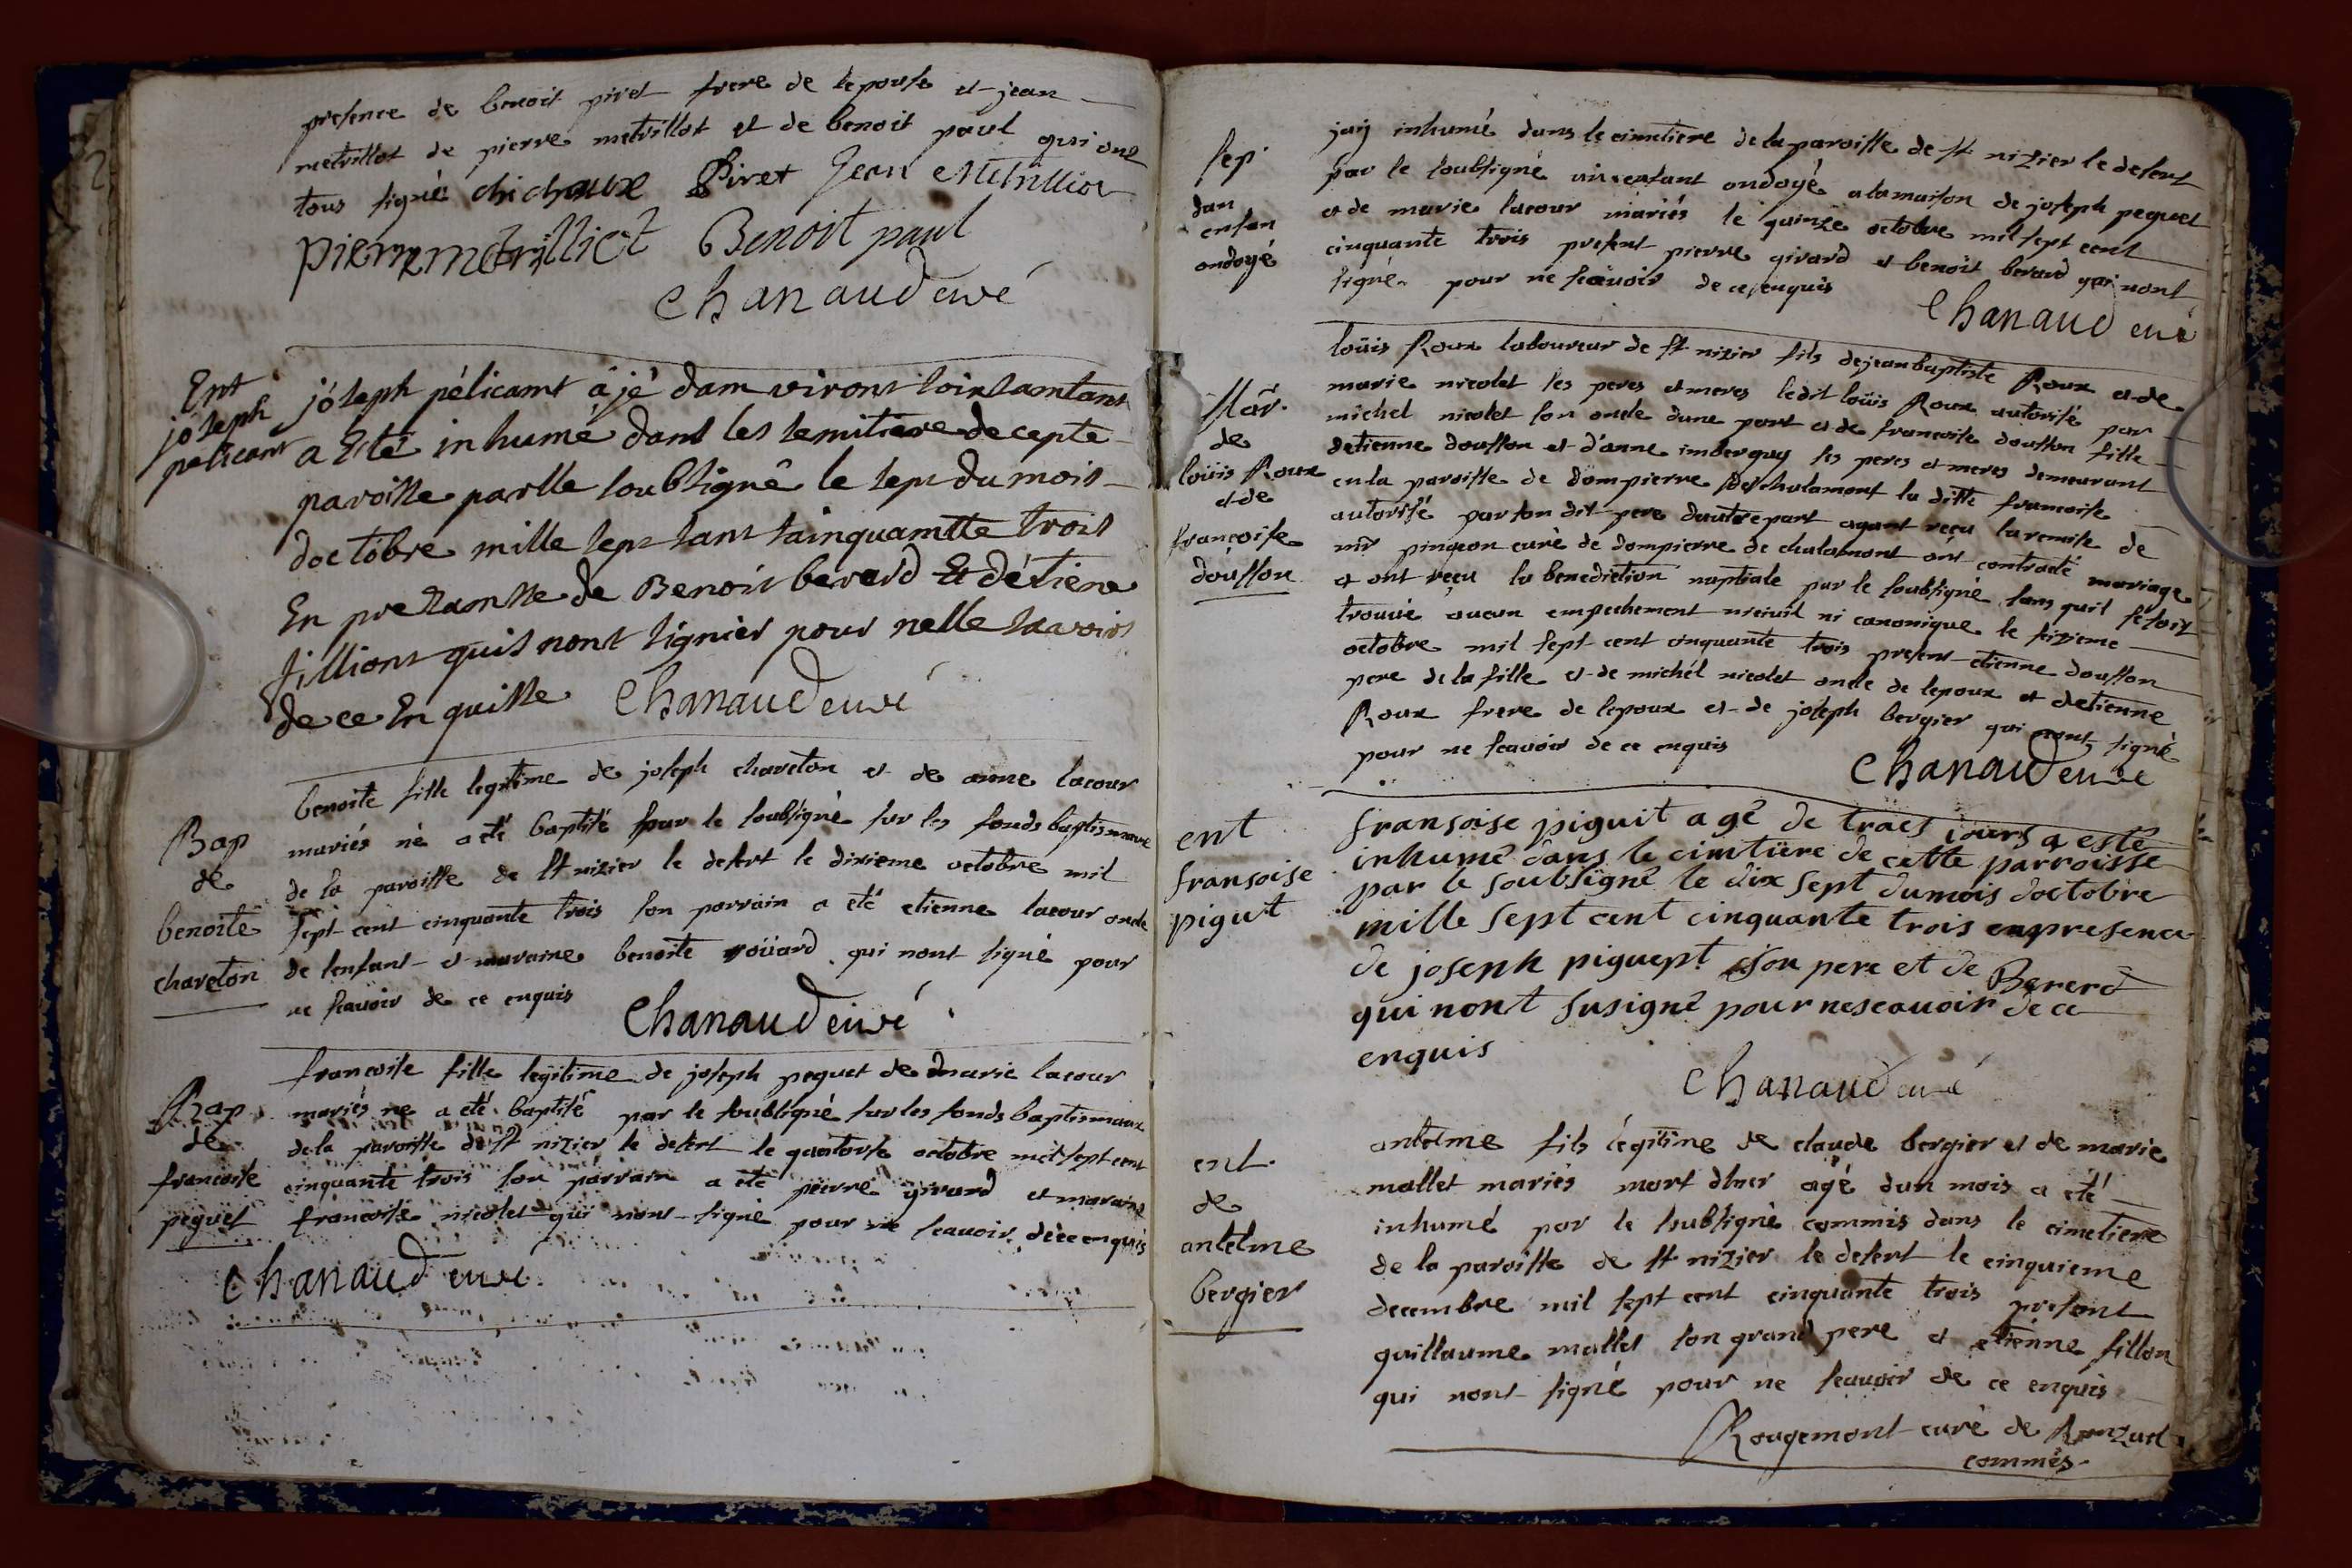 presence de benoit piret frere de lepouse et jean
metrillot de pierre metrillot et de benoit paul qui ont
tous signé chichoux Piret Jean Metrilliot
pierre metrilliet Benoit paul
Chanaud curé
Ent
joseph
pelicant
jóseph pélicamt âjé dam viront soissamtans
a Eté inhumé dans les semitiere de cepte
paroisse parlle soubsigné le sept du mois
doctobre mille sept sant sainquamtte trois
En prezansse de Benoit berard Et détiene
fillions quis nont signier pour nelle savoirs
de ce En quisse Chanaud curé
Bap
de
benoite
chareton
benoite fille legitime de joseph chareton et de anne lacour
mariés né a été baptisé par le soubsigné sur les fonds baptismaux
de la paroisse de st nizier le desert le dixieme octobre mil
sept cent cinquante trois son parrain a été etienne lacour oncle
de lenfant et maraine benoite roüard qui nont signé pour
ne scavoir de ce enquis
Chanaud curé
Bap
de
francoise
peguet
francoise fille legitime de joseph peguet de marie lacour
mariés ne a été baptisé par le soubsigné sur les fonds baptismaux
de la paroisse de st nizier le desert le quatorse octobre mil sept cent
cinquante trois son parrain a été pierre girard et maraine
francoise nicolet qui nont signé pour ne scavoir de ce enquis
Chanaud curé
sep
dun
enfan
ondoyé
jaij inhumé dans le cimetiere de la paroisse de st nizier le desert
par le soubsigné un enfant ondoyé a la maison de joseph peguet
et de marie lacour mariés le quinze octobre mil sept cent
cinquante trois present pierre girard et benoit berard qui nont
signé pour ne scavoir de ce enquis
Chanaud curé
Mar
de
loüis Roux
et de
francoise
dousson
loüis Roux laboureur de st nizier fils de jean baptiste Roux et de
marie nicolet ses peres et meres ledit loüis Roux autorisé par
michel nicolet son oncle dune part et de francoise dousson fille
detienne dousson et d'anne imberguy ses peres et meres demeurant
en la paroisse de dompierre de chalamont la ditte francoise
autorisé par son dit pere dautre part ayant reçu la remise de
mr pingeon curé de dompierre de chalamont ont contracté mariage
et ont reçu la benediction nuptiale par le soubsigné sans quil se soit
trouvé aucun empechement ni civil ni canonique le sizieme
octobre mil sept cent cinquante trois present etienne dousson
pere de la fille et de michél nicolet oncle de lepoux et detienne
Roux frere de lepoux et de joseph bergier qui nont signé
pour ne scavoir de ce enquis
Chanaud curé
ent
fransoise
pigut
fransoise piguit agé de traes jours a esté
inhumé dans le cimtiere de cette parroisse
par le soubsigné le dix sept du mois doctobre
mille sept cent cinquante trois en presence
de joseph piguept son pere et de Bererd
qui nont susigné pour ne scavoir de ce
enquis
Chanaud curé
ent
de
antelme
bergier
antelme fils legitime de claude bergier et de marie
mallet mariés mort dhier agé dun mois a été
inhumé par le soubsigné commis dans le cimetiere
de la paroisse de st nizier le desert le cinquieme
decembre mil sept cent cinquante trois present
guillaume mallet son grand pere et etienne fillon
qui nont signé pour ne scavoir de ce enquis
Rougemont curé de Ronzuel
commis